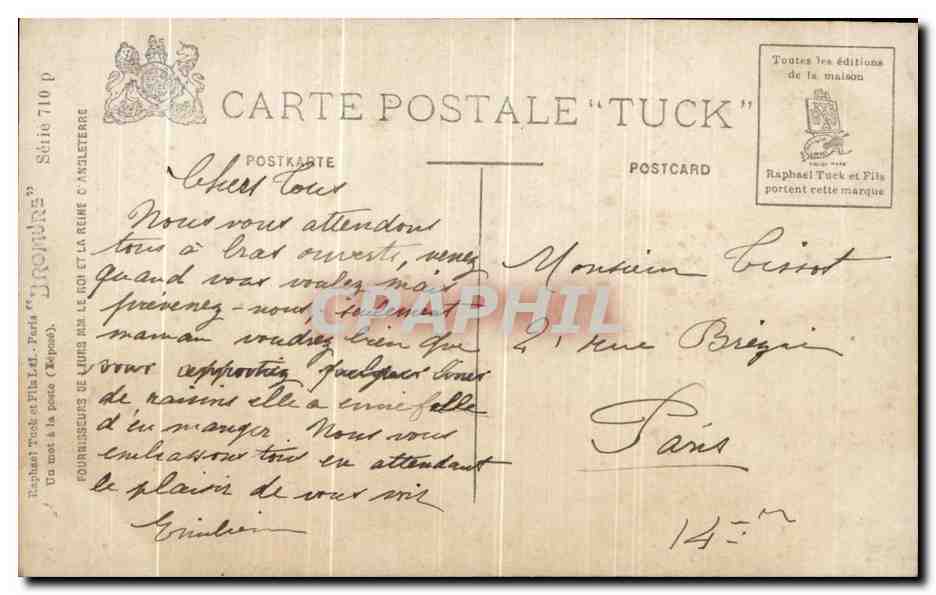 Raphael Tuck et Fils Ltd. - Paris "BROMURE" Série 710 P
Un mot à la poste (Déposé).
FOURNISSEURS DE LEURS MM. LE ROI ET LA REINE D'ANGLETERRE
CARTE POSTALE "TUCK"
POSTKARTE
POSTCARD
Toutes les éditions
de la maison
Raphael Tuck et Fils
portent cette marque
Chers Tous
Nous vous attendons
tous à bras ouverts, venez
quand vous voulez mais
prévenez-nous, seulement
maman voudrez bien que
vous apportiez quelques
de raisins elle a envie folle
d'en manger. Nous vous
embrassons tous en attendant
le plaisir de vous voir
Monsieur Tissot
2, rue
Paris
14
CPAPHIL